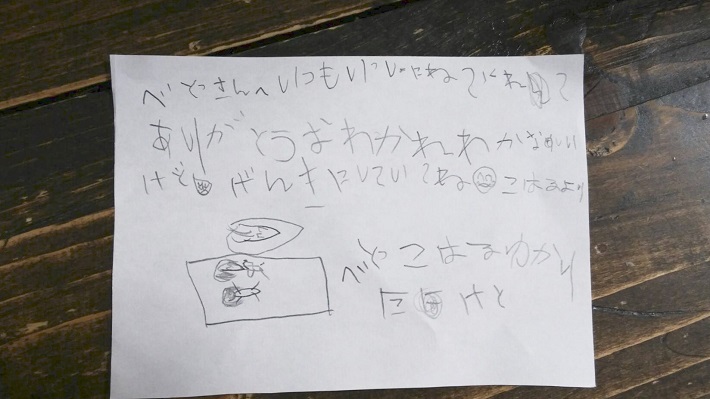 べとさんへいつもいっしょにねてくれて
ありがとうおわかれわかなしい
けどげんきにしていてねこはるより
べとこはるゆかり